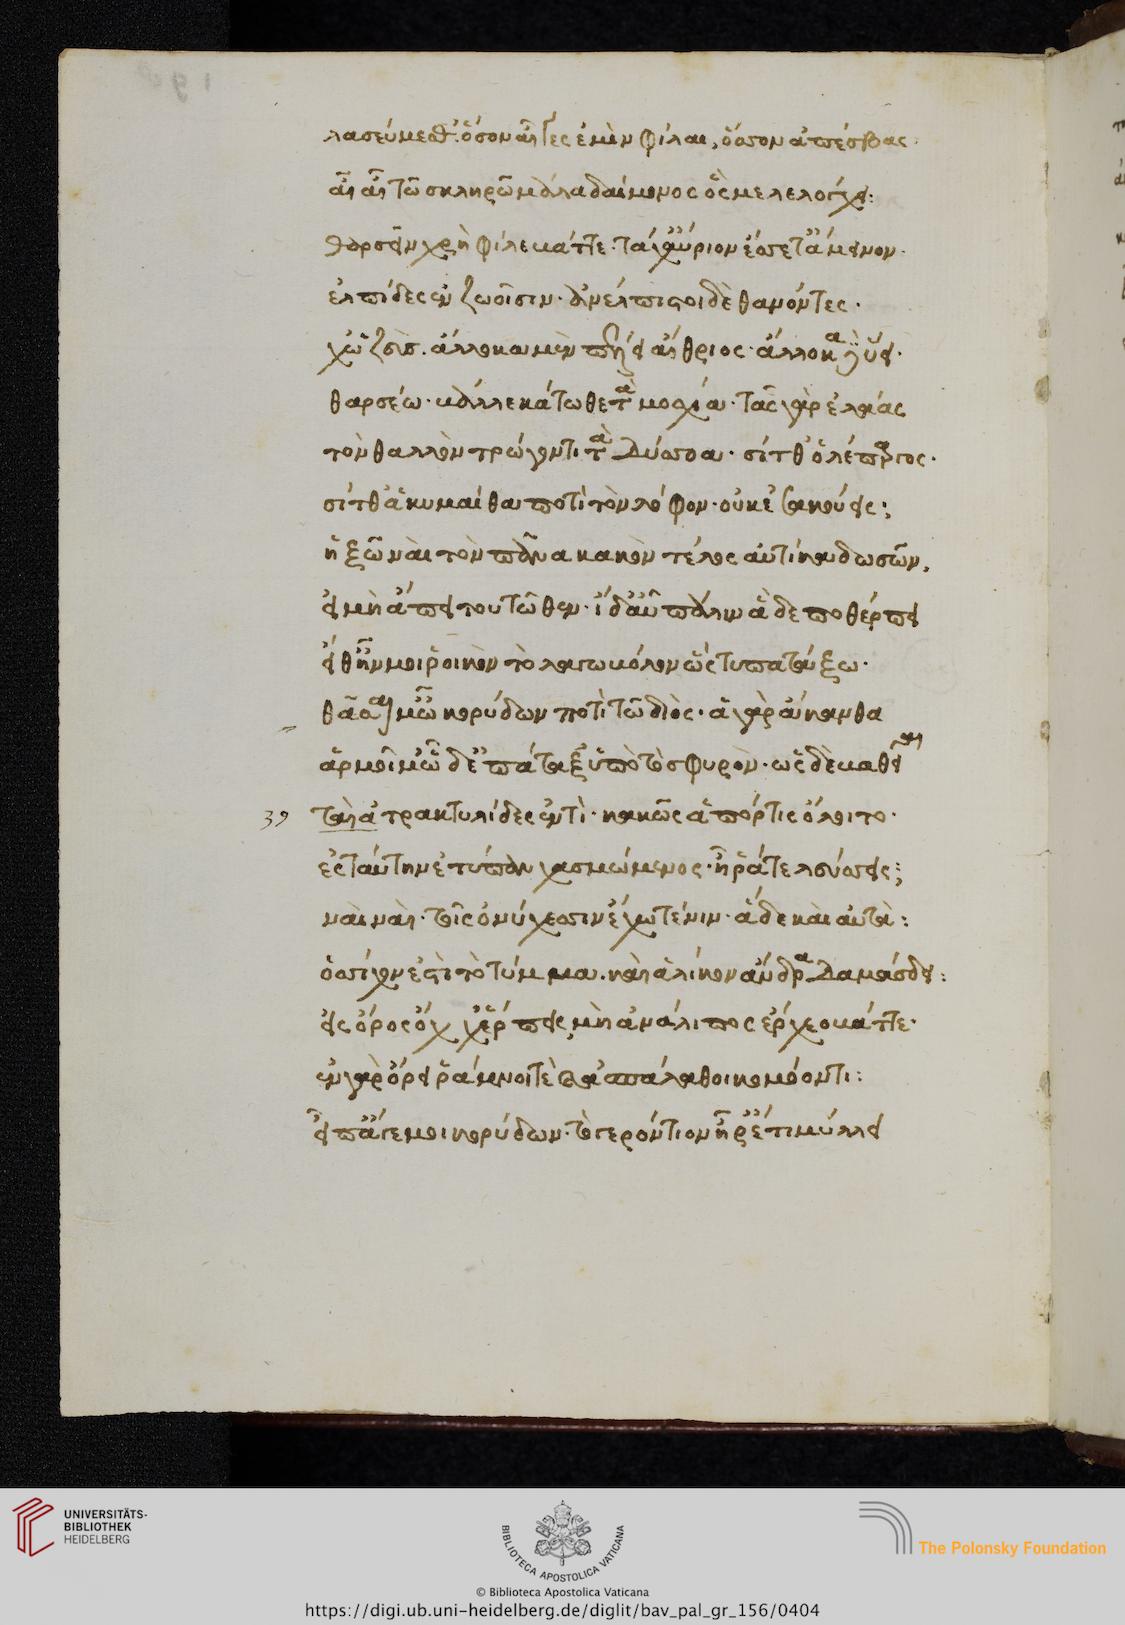 λασεύμεσθ'. ὅσον αἶγες ἐμὶν φίλαι, ὅσσον ἀπέσβας.
αἶ αἶ τῶ σκληρῶ μάλα δαίμονος ὅς με λελόγχει:
θαρσεῖν χρὴ φίλε βάττε. τάχ' αὔριον ἔσσετ' ἄμεινον.
ἐλπίδες ἐν ζωοῖσιν. ἀνέλπιστοι δὲ θανόντες.
χὠ ζεὺς. ἄλλοκα μὲν πέλει αἴθριος. ἄλλοκα δ' ὕει.
θαρσέω. βάλλε κάτωθε τὰ μοσχία. τᾶς γὰρ ἐλαίας
τὸν θαλλὸν τρώγοντι τὰ δύσσοα. σίτθ' ὁ λέπαργος.
σίτθ' ἁ κυμαίθα ποτὶ τὸν λόφον. οὐκ ἐσακούεις;
ἡξῶ ναὶ τὸν πᾶνα κακὸν τέλος αὐτίκα δωσῶν,
εἰ μὴ ἄπει τουτῶθεν. ἴδ' αὖ πάλιν ἅδε ποθέρπει
εἴθ' ἦν μοι ῥοικὸν τὸ λαγωβόλον ὥς τυ πατάξω.
θᾶσαι μ' ὦ κορύδων ποτὶ τῶ διός. ἁ γὰρ ἄκανθα
ἁρμοῖ μ' ὧδε ἐπάταξ' ὑπὸ τὸ σφυρὸν. ὡς δὲ βαθεῖαι
39 ταὶ ἀτρακτυλίδες ἐντὶ. κακῶς ἁ πόρτις ὄλοιτο.
ἐς ταύτην ἐτύπην χασμώμενος. ἦ ῥά γε λεύσσεις;
ναὶ ναὶ. τοῖς ὀνύχεσσιν ἔχω τέ νιν. ἅδε καὶ αὐτὰ:
ὁσσίχον ἐστὶ τὸ τύμμα. καὶ ἁλίκον ἄνδρα δαμάσδει:
εἰς ὄρος ὅχ' χ' ἕρπεις, μὴ ἀνάλιπος ἔρχεο βάττε.
ἐν γὰρ ὄρει ῥάμνοι τὲ καὶ ἀσπάλαθοι κομόοντι:
εἴπ' ἄγε μοι κορύδων. τὸ γερόντιον ἦ ῥ' ἔτι μύλλει
UNIVERSITÄTS-
BIBLIOTHEK
HEIDELBERG
BIBLIOTECA APOSTOLICA VATICANA
The Polonsky Foundation
© Biblioteca Apostolica Vaticana
https://digi.ub.uni-heidelberg.de/diglit/bav_pal_gr_156/0404